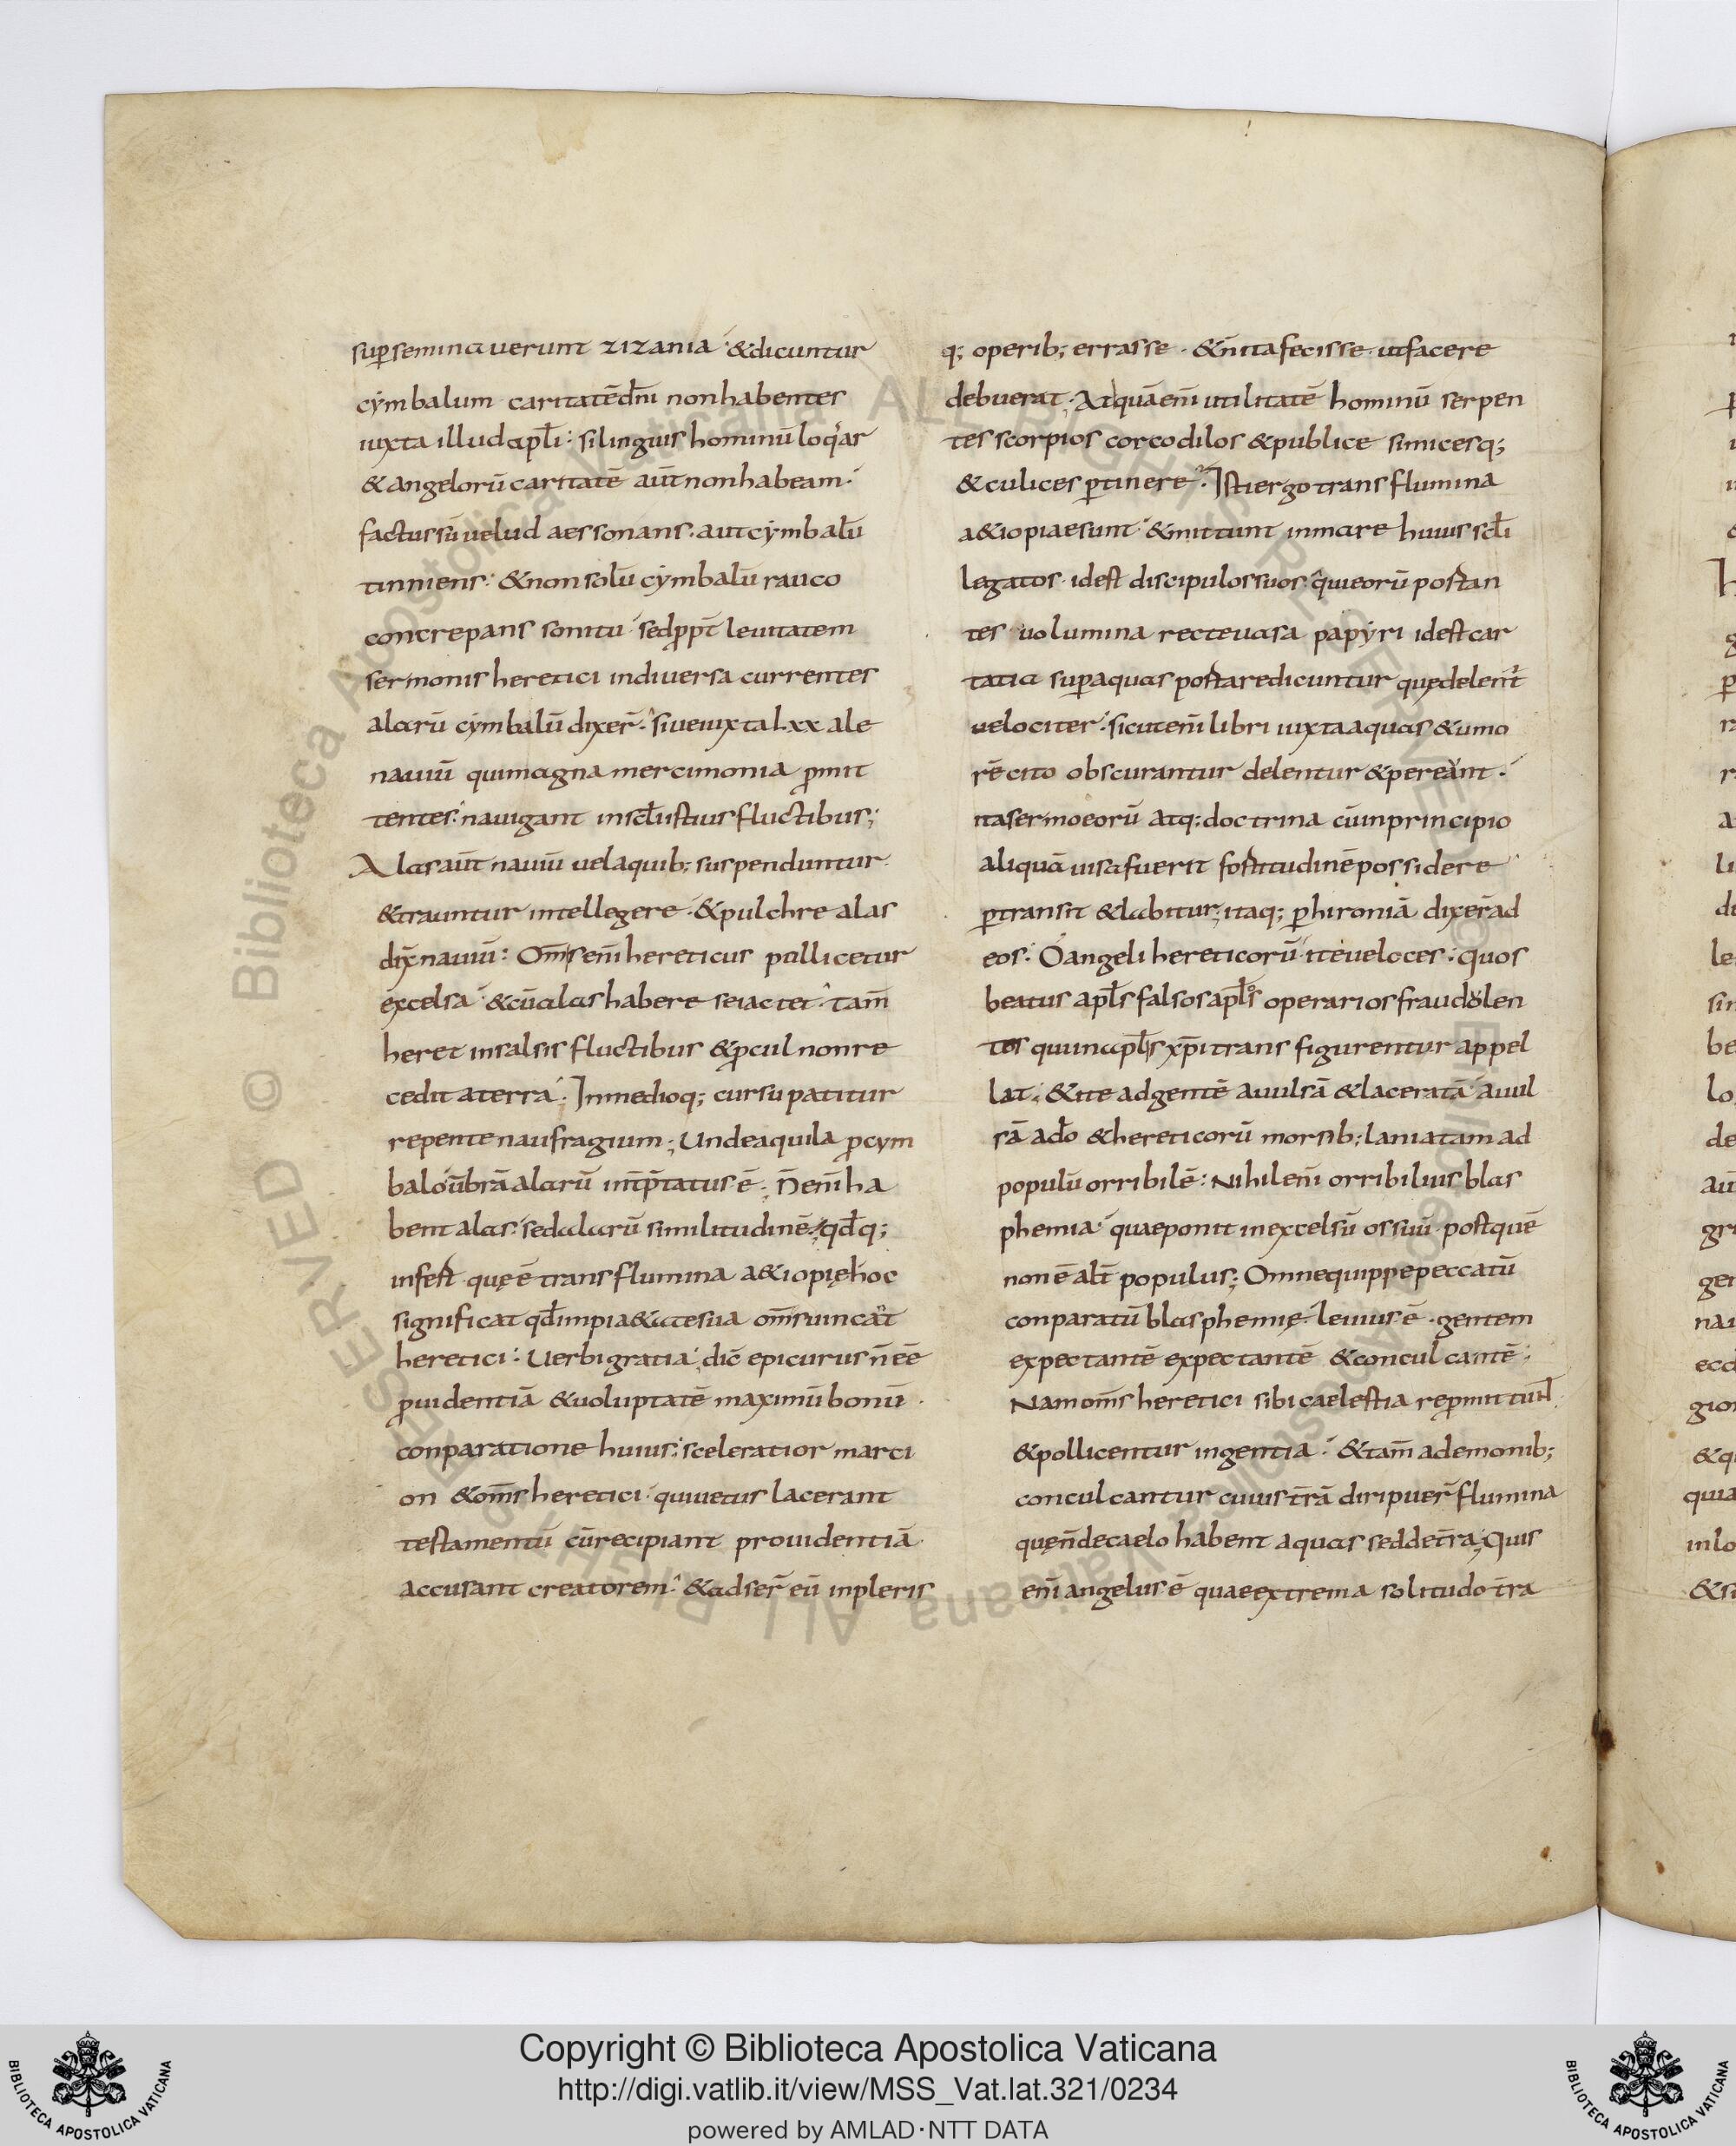 sup seminauerunt zizania · & dicuntur
cẏmbalum caritatē dn̄i non habentes
iuxta illud apl̄i : si linguis hominū loquar
& angelorū caritatē aut̄ non habeam ·
factus sū uelud aes sonans · aut cẏmbalū
tinniens : & non solū cẏmbalū rauco
concrepans sonitu · sed ꝓpt̄ leuitatem
sermonis heretici in diuersa currentes
alarū cẏmbalū dixer̄ · siue iuxta lxx ale
nauiū qui magna mercimonia ꝓmit
tentes · nauigant in scl̄i istius fluctibus ;
Alas aut̄ nauiū uela quib; suspenduntur
& trauntur intellegere · & pulchre alas
dix̄ nauiū : Om̄s en̄i hereticus pollicetur
excelsa · & cū alas habere se iactet · tam̄
heret in salsis fluctibus & ꝓcul non re
cedit a terra · In medioq; cursu patitur
repente naufragium ; Unde aquila ꝓ cym
balo ūbrā alarū int̄p̄tatus ē · n̄ en̄i ha
bent alas · sed alarū similitudinē · qd̄q;
infest quę ē trans flumina a&iopię hoc
significat qd̄ impia&ate sua om̄s uincant
heretici : Uerbi gratia dic̄ epicurus n̄ eē
ꝓuidentiā & uoluptatē maximū bonū ·
conparatione huius · sceleratior marci
on & om̄s heretici · qui uetus lacerant
testamentū cū recipiant prouidentiā
accusant creatorem · & adser̄ eū in pleris
q; operib; errasse · & n̄ ita fecisse · ut facere
debuerat · Ad quā en̄i utilitatē hominū serpen
tes scorpios corcodilos & publice simicesq;
& culices ꝑtinere · Isti ergo trans flumina
a&iopiae sunt · & mittunt in mare huius scl̄i
legatos · id est discipulos suos · qui eorū portan
tes uolumina recte uasa papẏri id est car
tatia sup aquas portare dicuntur quę delent̄
uelociter · sicut en̄i libri iuxta aquas & umo
rē cito obscurantur delentur & pereant ·
ita sermo eorū atq; doctrina cū in principio
aliquā uisa fuerit fortitudinē possidere
ꝑtransit & labitur ; itaq; ꝑ hironiā dixer̄ ad
eos : O angeli hereticorū ite ueloces : quos
beatus apl̄s falsos apl̄os operarios fraudolen
tes qui in apl̄s xp̄i transfigurentur appel
lat ; & ite ad gentē auulsā & laceratā auul
sā a do̅ & hereticorū morsib; laniatam ad
populū orribilē : Nihil en̄i orribilius blas
phemia · quae ponit in excelsū os suū · post quē
non ē alt̄ populus ; Omne quippe peccatū
conparatū blasphemię leuius ē · gentem
expectantē expectantē & conculcantē ·
Nam om̄s heretici sibi caelestia repromittunt
& pollicentur ingentia · & tam̄ a demonib;
conculcantur cuius tr̄ā diripuer̄ flumina
quę n̄ de caelo habent aquas sed de tr̄a ; Quis
en̄i angelus ē quae extrema solitudo tr̄a
Copyright © Biblioteca Apostolica Vaticana
http://digi.vatlib.it/view/MSS_Vat.lat.321/0234
powered by AMLAD·NTT DATA
BIBLIOTECA APOSTOLICA VATICANA
BIBLIOTECA APOSTOLICA VATICANA